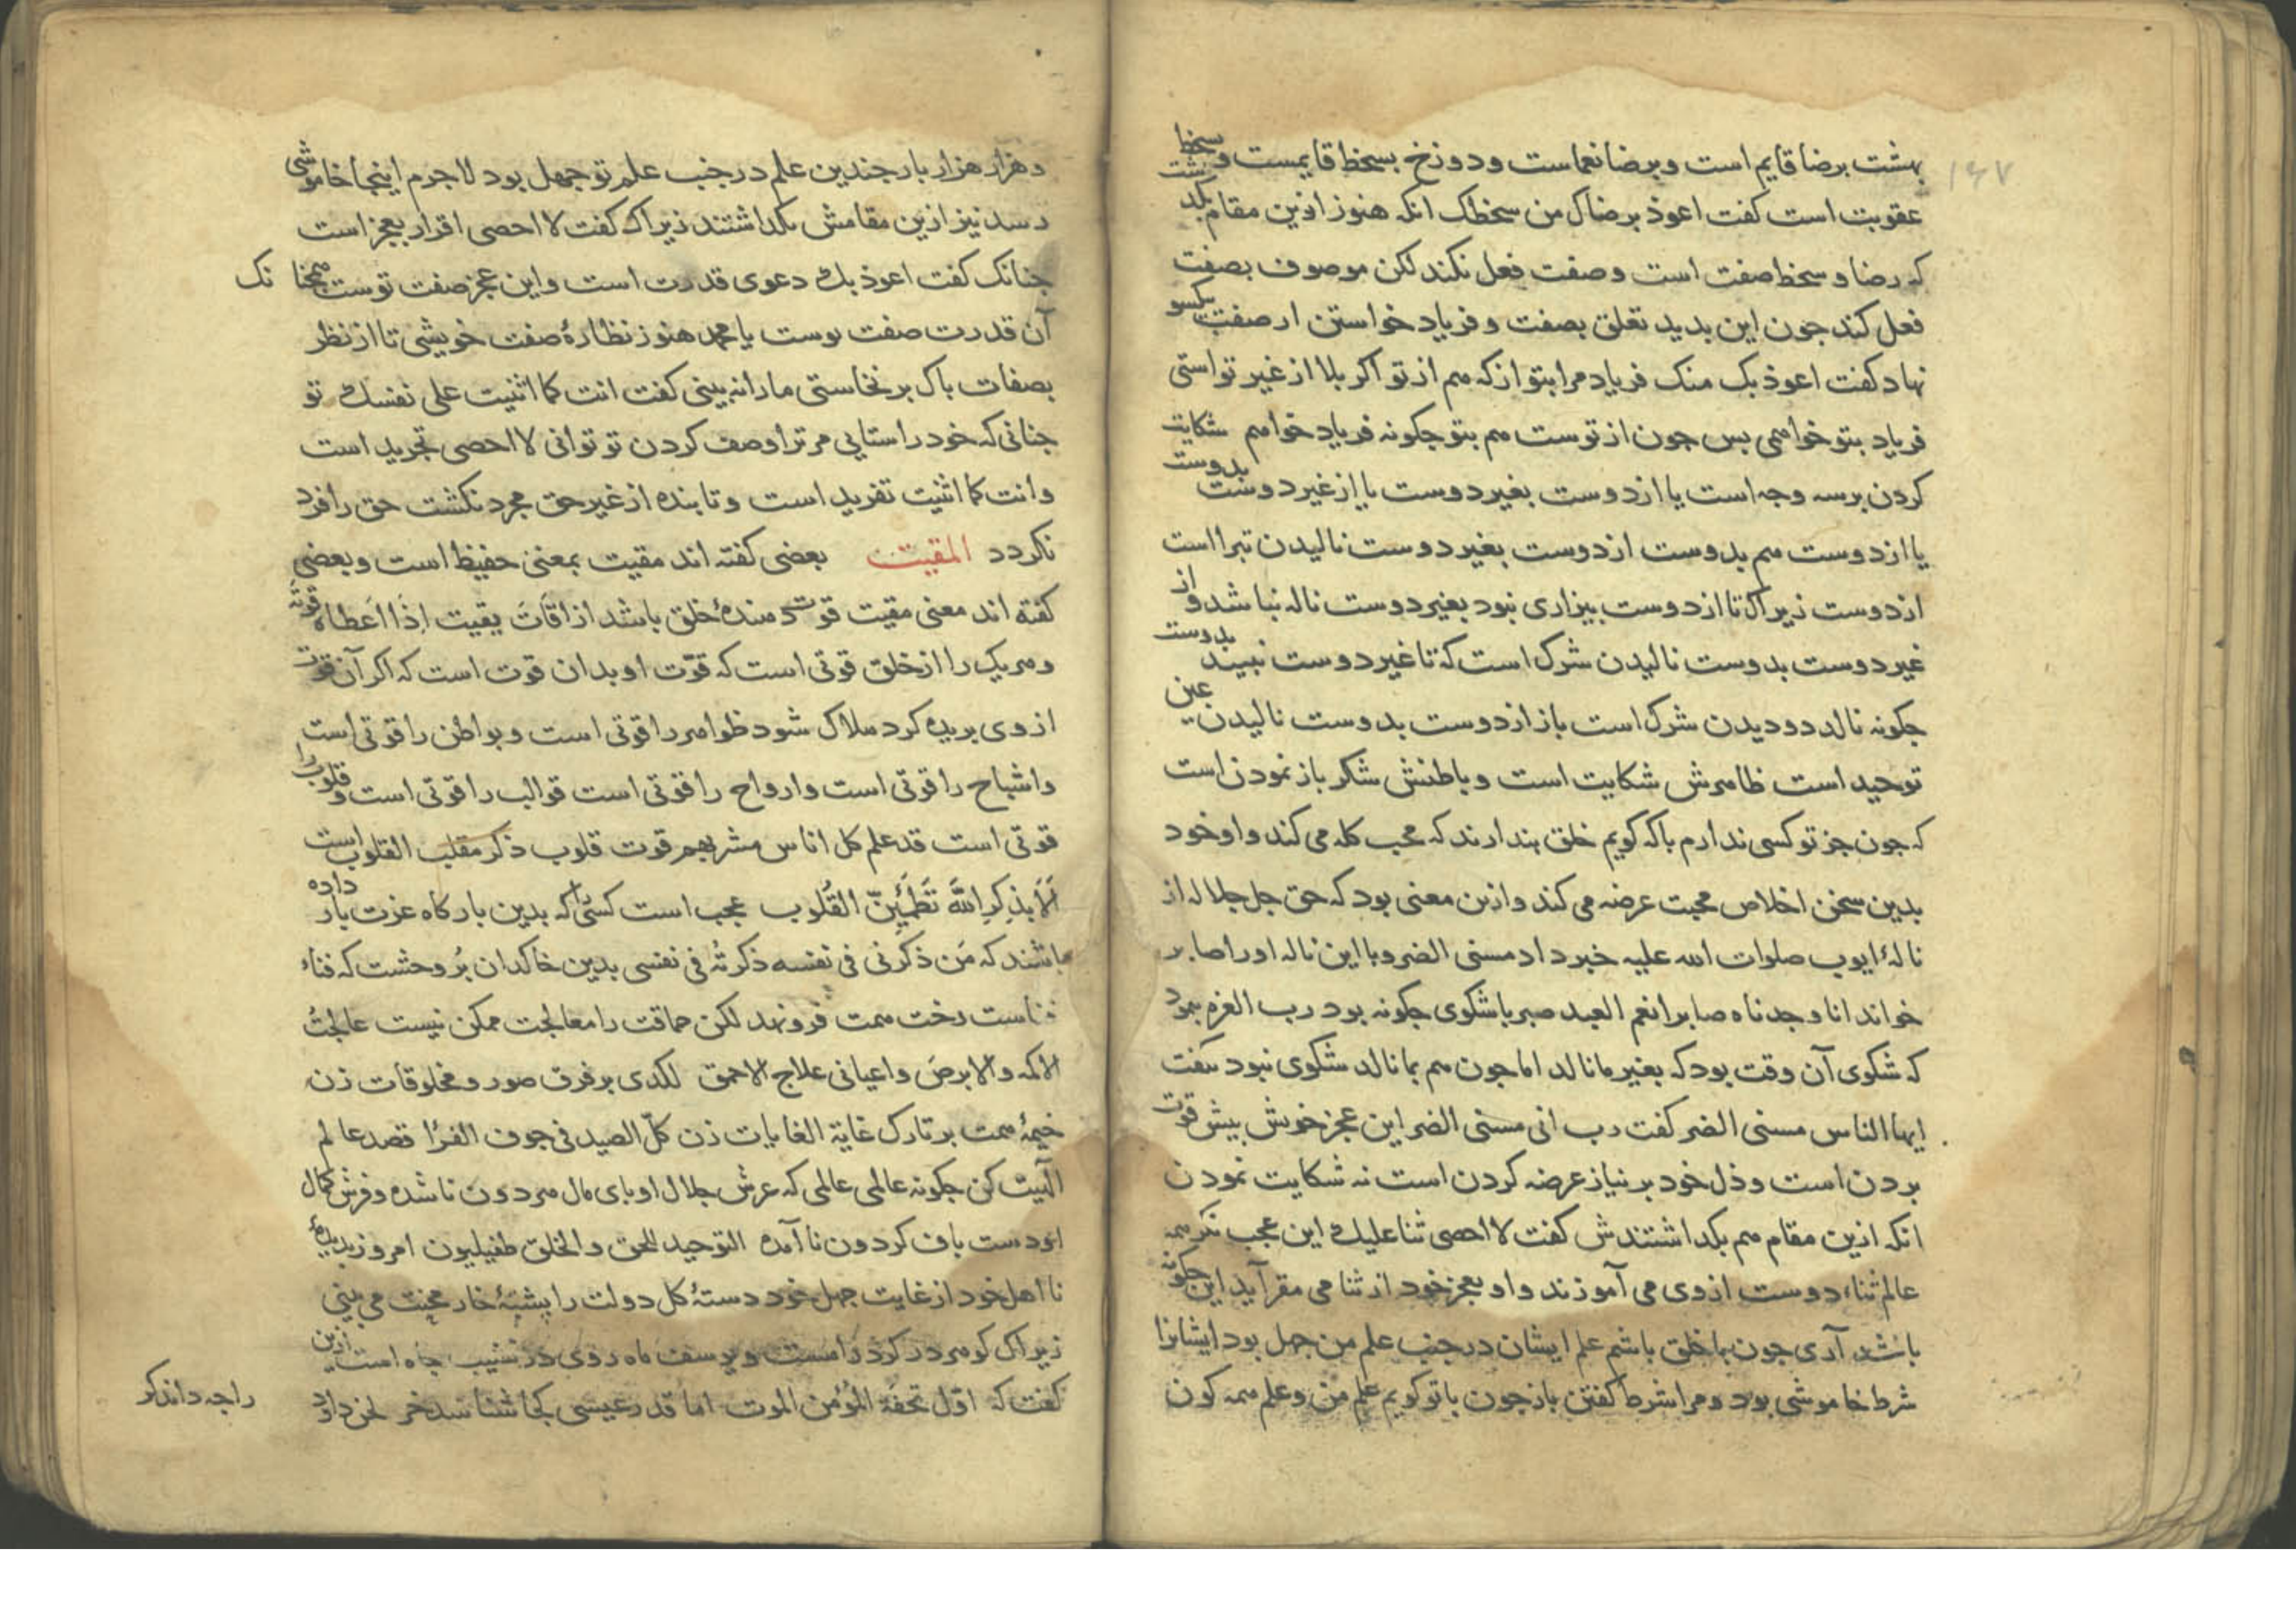 ۱۶۷
بهشت برضا قایم است و برضا نعماست و دوزخ بسخط قایمست و سخط
عقوبت است کفت اعوذ برضاک من سخطک انکه هنوز ازین مقام بکذشت
که رضا و سخط صفت است و صفت فعل نکند لکن موصوف بصفت
فعل کند جون این بدید تعلق بصفت و فریاد خواستن از صفت یکسو
نهاد کفت اعوذ بک منک فریاد مرا بتو از که هم از تو اکر بلا از غیر تو استی
فریاد بتو خواهمی بس جون از توست هم بتو جکونه فریاد خواهم شکایت
کردن بر سه وجه است یا از دوست بغیر دوست یا از غیر دوست بدوست
یا از دوست هم بدوست از دوست بغیر دوست نالیدن تبرا است
از دوست زیراک تا از دوست بیزاری نبود بغیر دوست ناله نباشد و از
غیر دوست بدوست نالیدن شرک است که تا غیر دوست نبیند بدوست
جکونه نالد دو دیدن شرک است باز از دوست بدوست نالیدن عین
توحید است ظاهرش شکایت است و باطنش شکر باز نمودن است
که جون جز تو کسی ندارم باکه کویم خلق بندارند که محب کله می کند و او خود
بدین سخن اخلاص محبت عرضه می کند و ازین معنی بود که حق جل جلاله از
نالهٔ ایوب صلوات الله علیه خبر داد مسنی الضر و با این ناله او را صابر
خواند انا وجدناه صابرا نعم العبد صبر با شکوی جکونه بود رب العزه نمود
که شکوی آن وقت بود که بغیر ما نالد اما جون هم بما نالد شکوی نبود نکفت
ایها الناس مسنی الضر کفت رب انی مسنی الضر این عجز خویش بیش قوت
بردن است و ذل خود بر نیاز عرضه کردن است نه شکایت نمودن
انکه ازین مقام هم بکداشتندش کفت لا احصی ثنا علیک این عجب نکر همه
عالم ثناء دوست از وی می آموزند و او بعجز خود از ثنا می مقر آید این جکونه
باشد آری جون با خلق باشم علم ایشان در جنب علم من جهل بود ایشانرا
شرط خاموشی بود و مرا شرط کفتن باز جون با تو کویم علم من و علم همه کون
و هزار هزار بار جندین علم در جنب علم تو جهل بود لا جرم اینجا خاموشی
رسد نیز ازین مقامش بکداشتند زیراک کفت لا احصی اقرار بعجز است
جنانک کفت اعوذ بک دعوی قدرت است و این عجز صفت توست همجنانک
آن قدرت صفت توست یا محمد هنوز نظارهٔ صفت خویشی تا از نظر
بصفات باک برنخاستی ما را نه بینی کفت انت کما اثنیت علی نفسک تو
جنانی که خود را ستایی مر ترا وصف کردن تو توانی لا احصی تجرید است
و انت کما اثنیت تفرید است و تا بنده از غیر حق مجرد نکشت حق را فرد
نکردد المقیت بعضی کفته اند مقیت بمعنی حفیظ است و بعضی
کفته اند معنی مقیت قوت دهندهٔ خلق باشد از اقات یقیت اذا اعطاه قوته
و هریک را از خلق قوتی است که قوّت او بدان قوت است که اکر آن قوت
از وی بریده کرد هلاک شود ظواهر را قوتی است و بواطن را قوتی است
و اشباح را قوتی است و ارواح را قوتی است قوالب را قوتی است و قلوب را
قوتی است قد علم کل اناس مشربهم قوت قلوب ذکر مقلب القلوب است
اَلَا بِذِکرِ اللّه تَطمَئِنّ القُلُوب عجب است کسی را که بدین بارکاه عزت بار داده
باشند که مَن ذکرنی فی نفسه ذکرته فی نفسی بدین خاکدان بُر وحشت که فناء
فناست رخت همت فرو نهد لکن حماقت را معالجت ممکن نیست عالجتُ
الاکمه و الابرص و اعیانی علاج الاحمق لکدی بر فرق صور و مخلوقات زن
خیمهٔ همت بر تارک غایة الغایات زن کلّ الصید فی جوف الفرا قصد عالم
الهیت کن جکونه عالمی عالمی که عرش جلال او بای مال هر دون ناشده و فرش کمال
او دست باف کردون نا آمده التوحید للحق و الخلق طفیلیون امروز بدیدهٔ
نا اهل خود از غایت جهل خود دستهٔ کل دولت را بشتهٔ خار محنت می بینی
زیراک کوهر در کرد راست و یوسف ماه روی در نشیب جاه است ازین
کفت که اوّل تحفة المؤمن الموت اما قدر عیسی کجا شناسد خر لحن داود
را جه داند کر